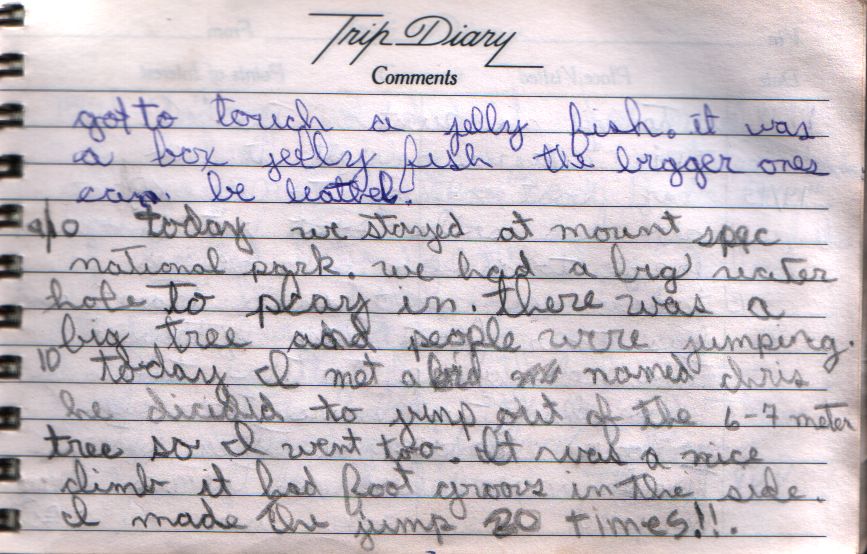 Trip Diary
Comments
got to touch a jelly fish. it was
a box jelly fish the bigger ones
can be leathel!
9/10 today we stayed at mount spec
national park. we had a big water
hole to play in. there was a
big tree and people were jumping.
10 today I met a kid named chris
he decided to jump out of the 6-7 meter
tree so I went too. It was a nice
climb it had foot groovs in the side.
I made the jump 20 times!!.